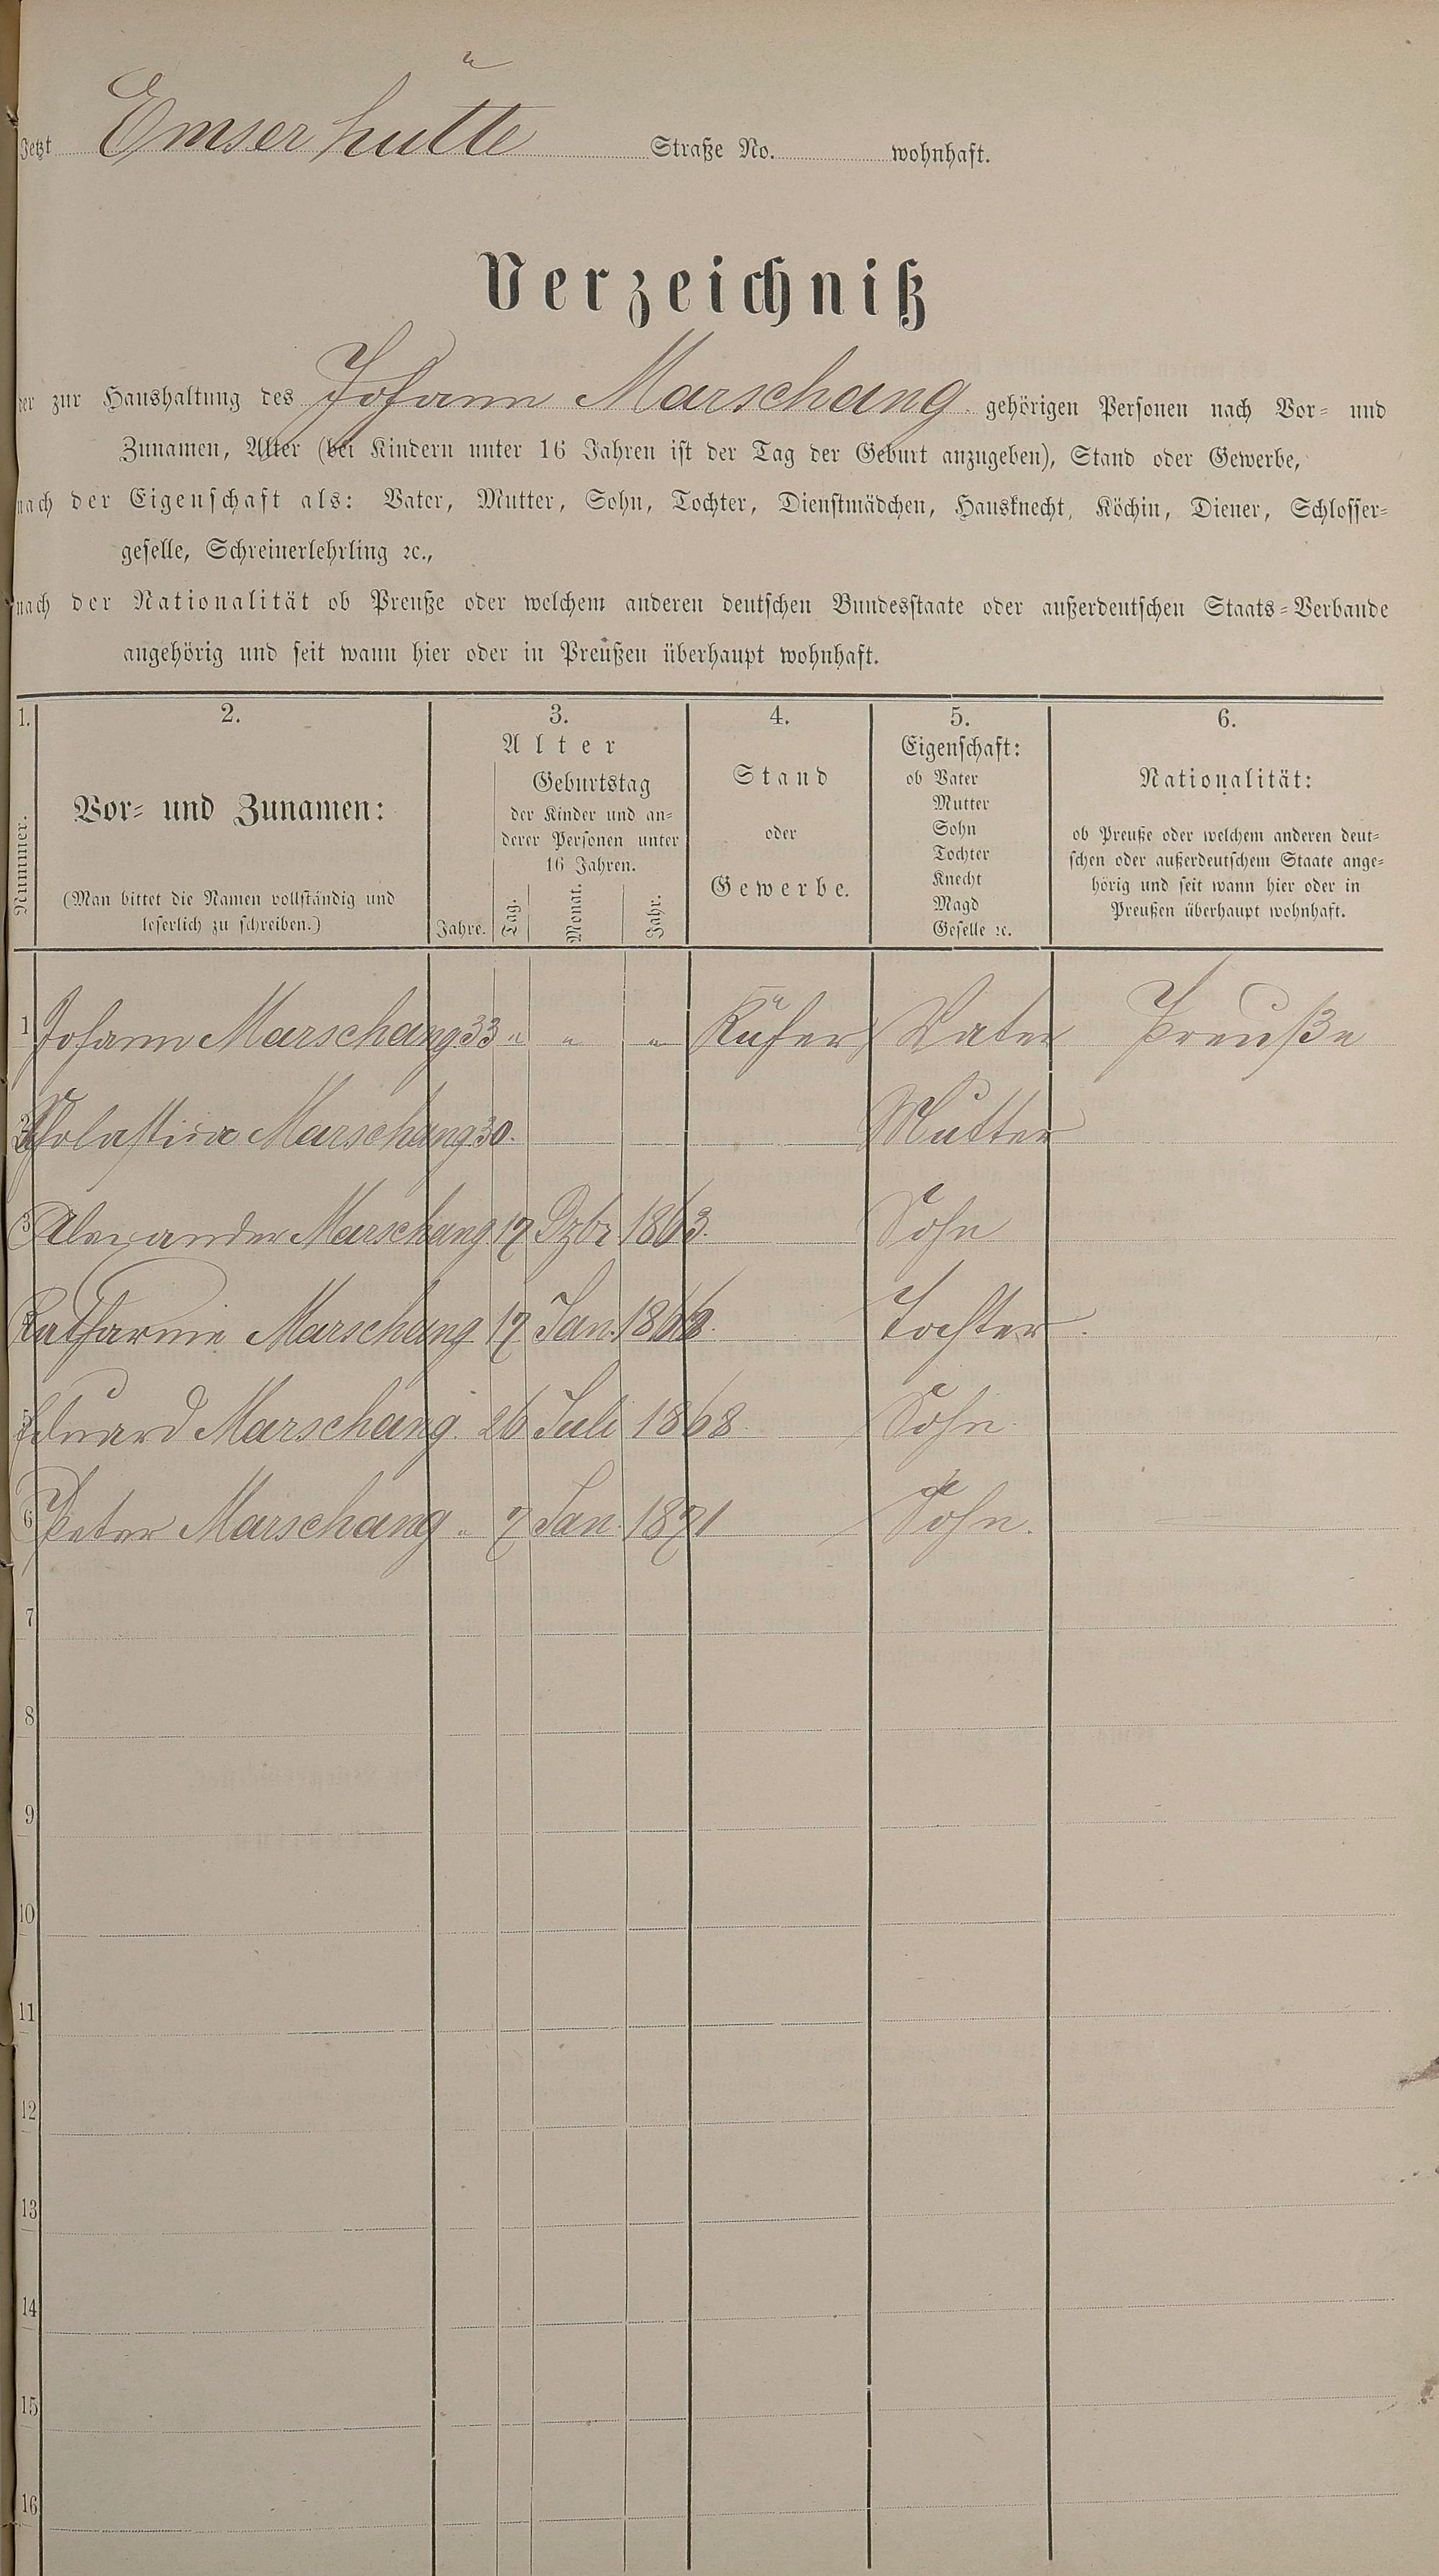 Jetzt Emser hütte Straße No. wohnhaft.
Verzeichniß
der zur Haushaltung des Johann Marschang gehörigen Personen nach Vor- und
Zunamen, Alter (bei Kindern unter 16 Jahren ist der Tag der Geburt anzugeben), Stand oder Gewerbe,
nach der Eigenschaft als: Vater, Mutter, Sohn, Tochter, Dienstmädchen, Hausknecht, Köchin, Diener, Schlosser-
geselle, Schreinerlehrling ꝛc.,
nach der Nationalität ob Preuße oder welchem anderen deutschen Bundesstaate oder außerdeutschen Staats-Verbande
angehörig und seit wann hier oder in Preußen überhaupt wohnhaft.
1. 2. 3. 4. 5. 6.
Nummer.
Vor- und Zunamen:
(Man bittet die Namen vollständig und
leserlich zu schreiben.)
Alter
Jahre.
Geburtstag
der Kinder und an-
derer Personen unter
16 Jahren.
Tag. Monat. Jahr.
Stand
oder
Gewerbe.
Eigenschaft:
ob Vater
Mutter
Sohn
Tochter
Knecht
Magd
Geselle ꝛc.
Nationalität:
ob Preuße oder welchem anderen deut-
schen oder außerdeutschem Staate ange-
hörig und seit wann hier oder in
Preußen überhaupt wohnhaft.
1 Johann Marschang 33 " " " Küfer Vater Preuße
2 Marschang 30. Mutter
3 Alexander Marschang 17 Dzbr 1863. Sohn
Katharine Marschang 17 Jan. Tochter.
5 Eduard Marschang. 26 Juli 1868. Sohn.
6 Peter Marschang " 7 Jan. 1871 Sohn.
7
8
9
10
11
12
13
14
15
16